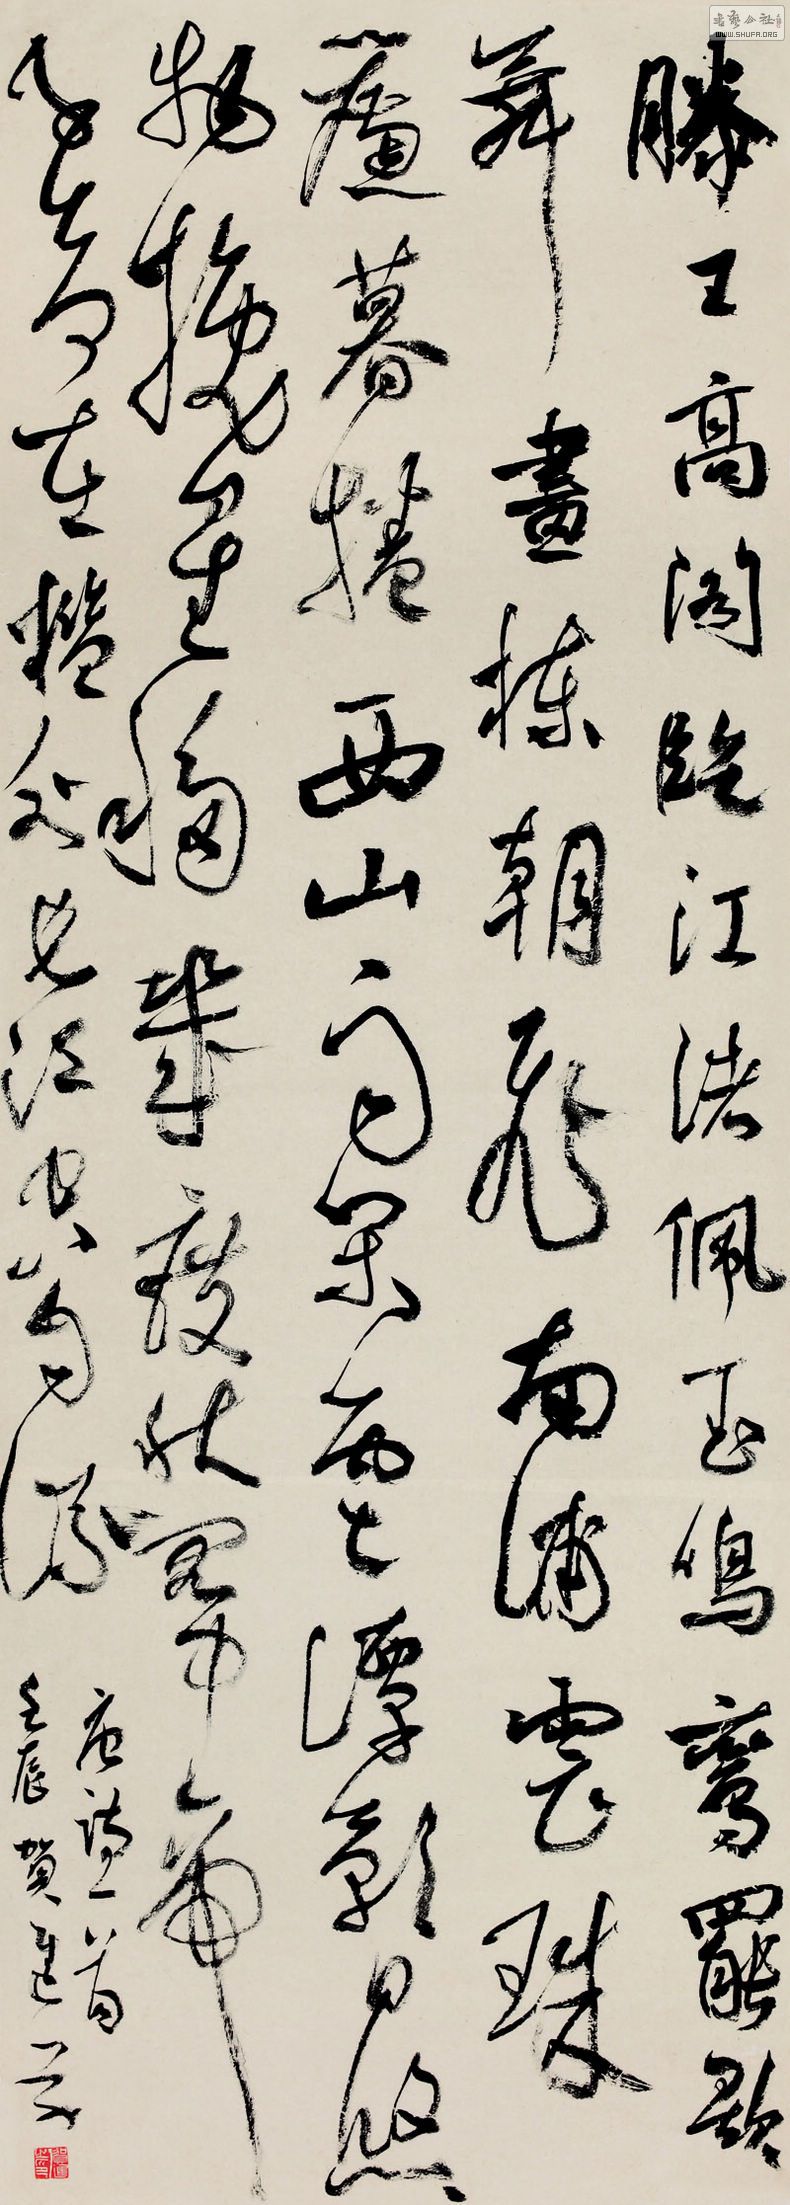 書藝公社
WWW.SHUFA.ORG
滕王高閣臨江渚佩玉鳴鸞罷歌
舞畫棟朝飛南浦雲珠
簾暮捲西山雨閑雲潭影日悠悠
物換星移幾度秋閣中帝
子今何在檻外長江空自流
唐詩一首
壬辰賀進